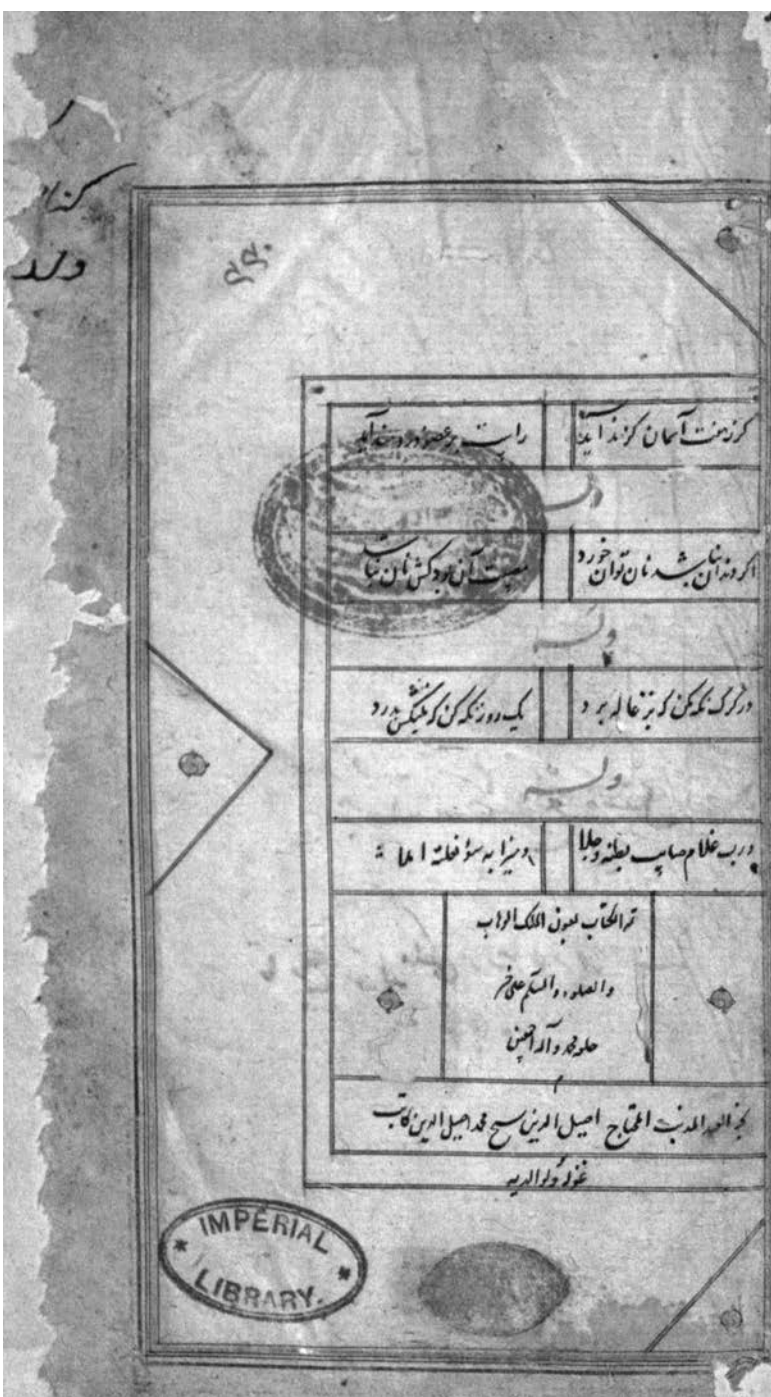 ۴۴۰
گر ز هفت آسمان گزند آید راست بر عضو دردمند آید
وله
اگر دندان نباشد نان توان خورد مصیبت آن بود کش نان نباشد
وله
در گرگ نگه مکن که بزغاله برد یک روز نگه کن که پلنگش بدرد
وله
و رب غلام صایب
تم الکتاب بعون الملک الوهاب
والصلوة والسلام علی خیر
خلقه محمد و آله اجمعین
م
العبد المذنب المحتاج اصیل الدین محمد اصیل الدین کاتب
غفر له ولوالدیه
ولد
IMPERIAL
LIBRARY.